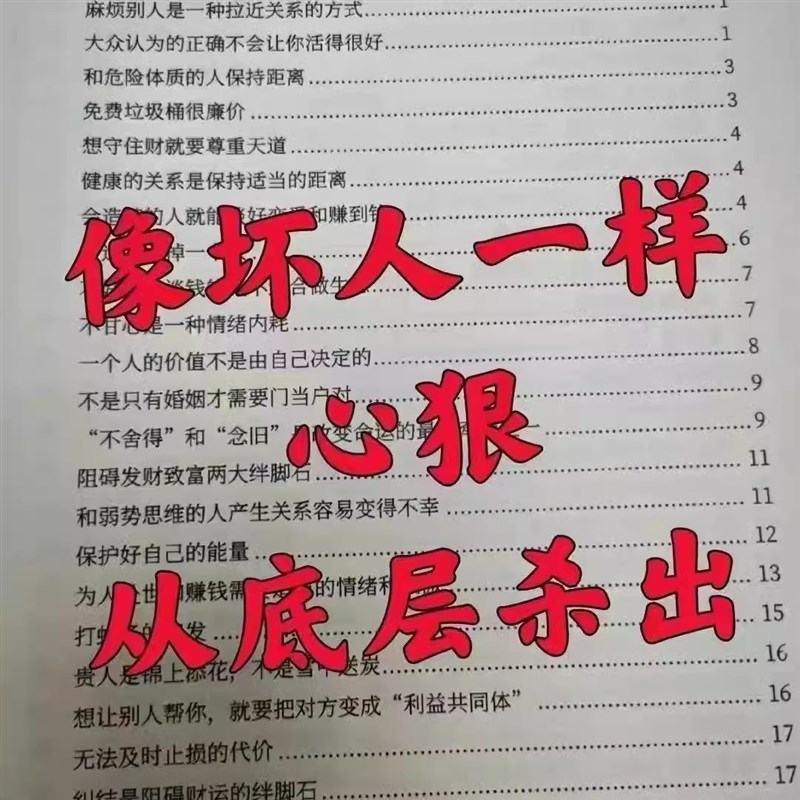 麻烦别人是一种拉近关系的方式........1
大众认为的正确不会让你活得很好........1
和危险体质的人保持距离........3
免费垃圾桶很廉价........3
想守住财就要尊重天道........4
健康的关系是保持适当的距离........4
的人就能 好 和赚到 ........4
像坏人一样
掉一 ........6
合做生 ........7
不甘心是一种情绪内耗........7
一个人的价值不是由自己决定的........8
不是只有婚姻才需要门当户对........9
心狠
“不舍得”和“念旧” 改变命运的最 ........9
阻碍发财致富两大绊脚石........11
和弱势思维的人产生关系容易变得不幸........11
保护好自己的能量........12
为人处世和赚钱需 的情绪 ........13
从底层杀出
打 的 发........15
贵人是锦上添花，不是雪中送炭........16
想让别人帮你，就要把对方变成“利益共同体”........16
无法及时止损的代价........17
纠结是阻碍财运的绊脚石........17